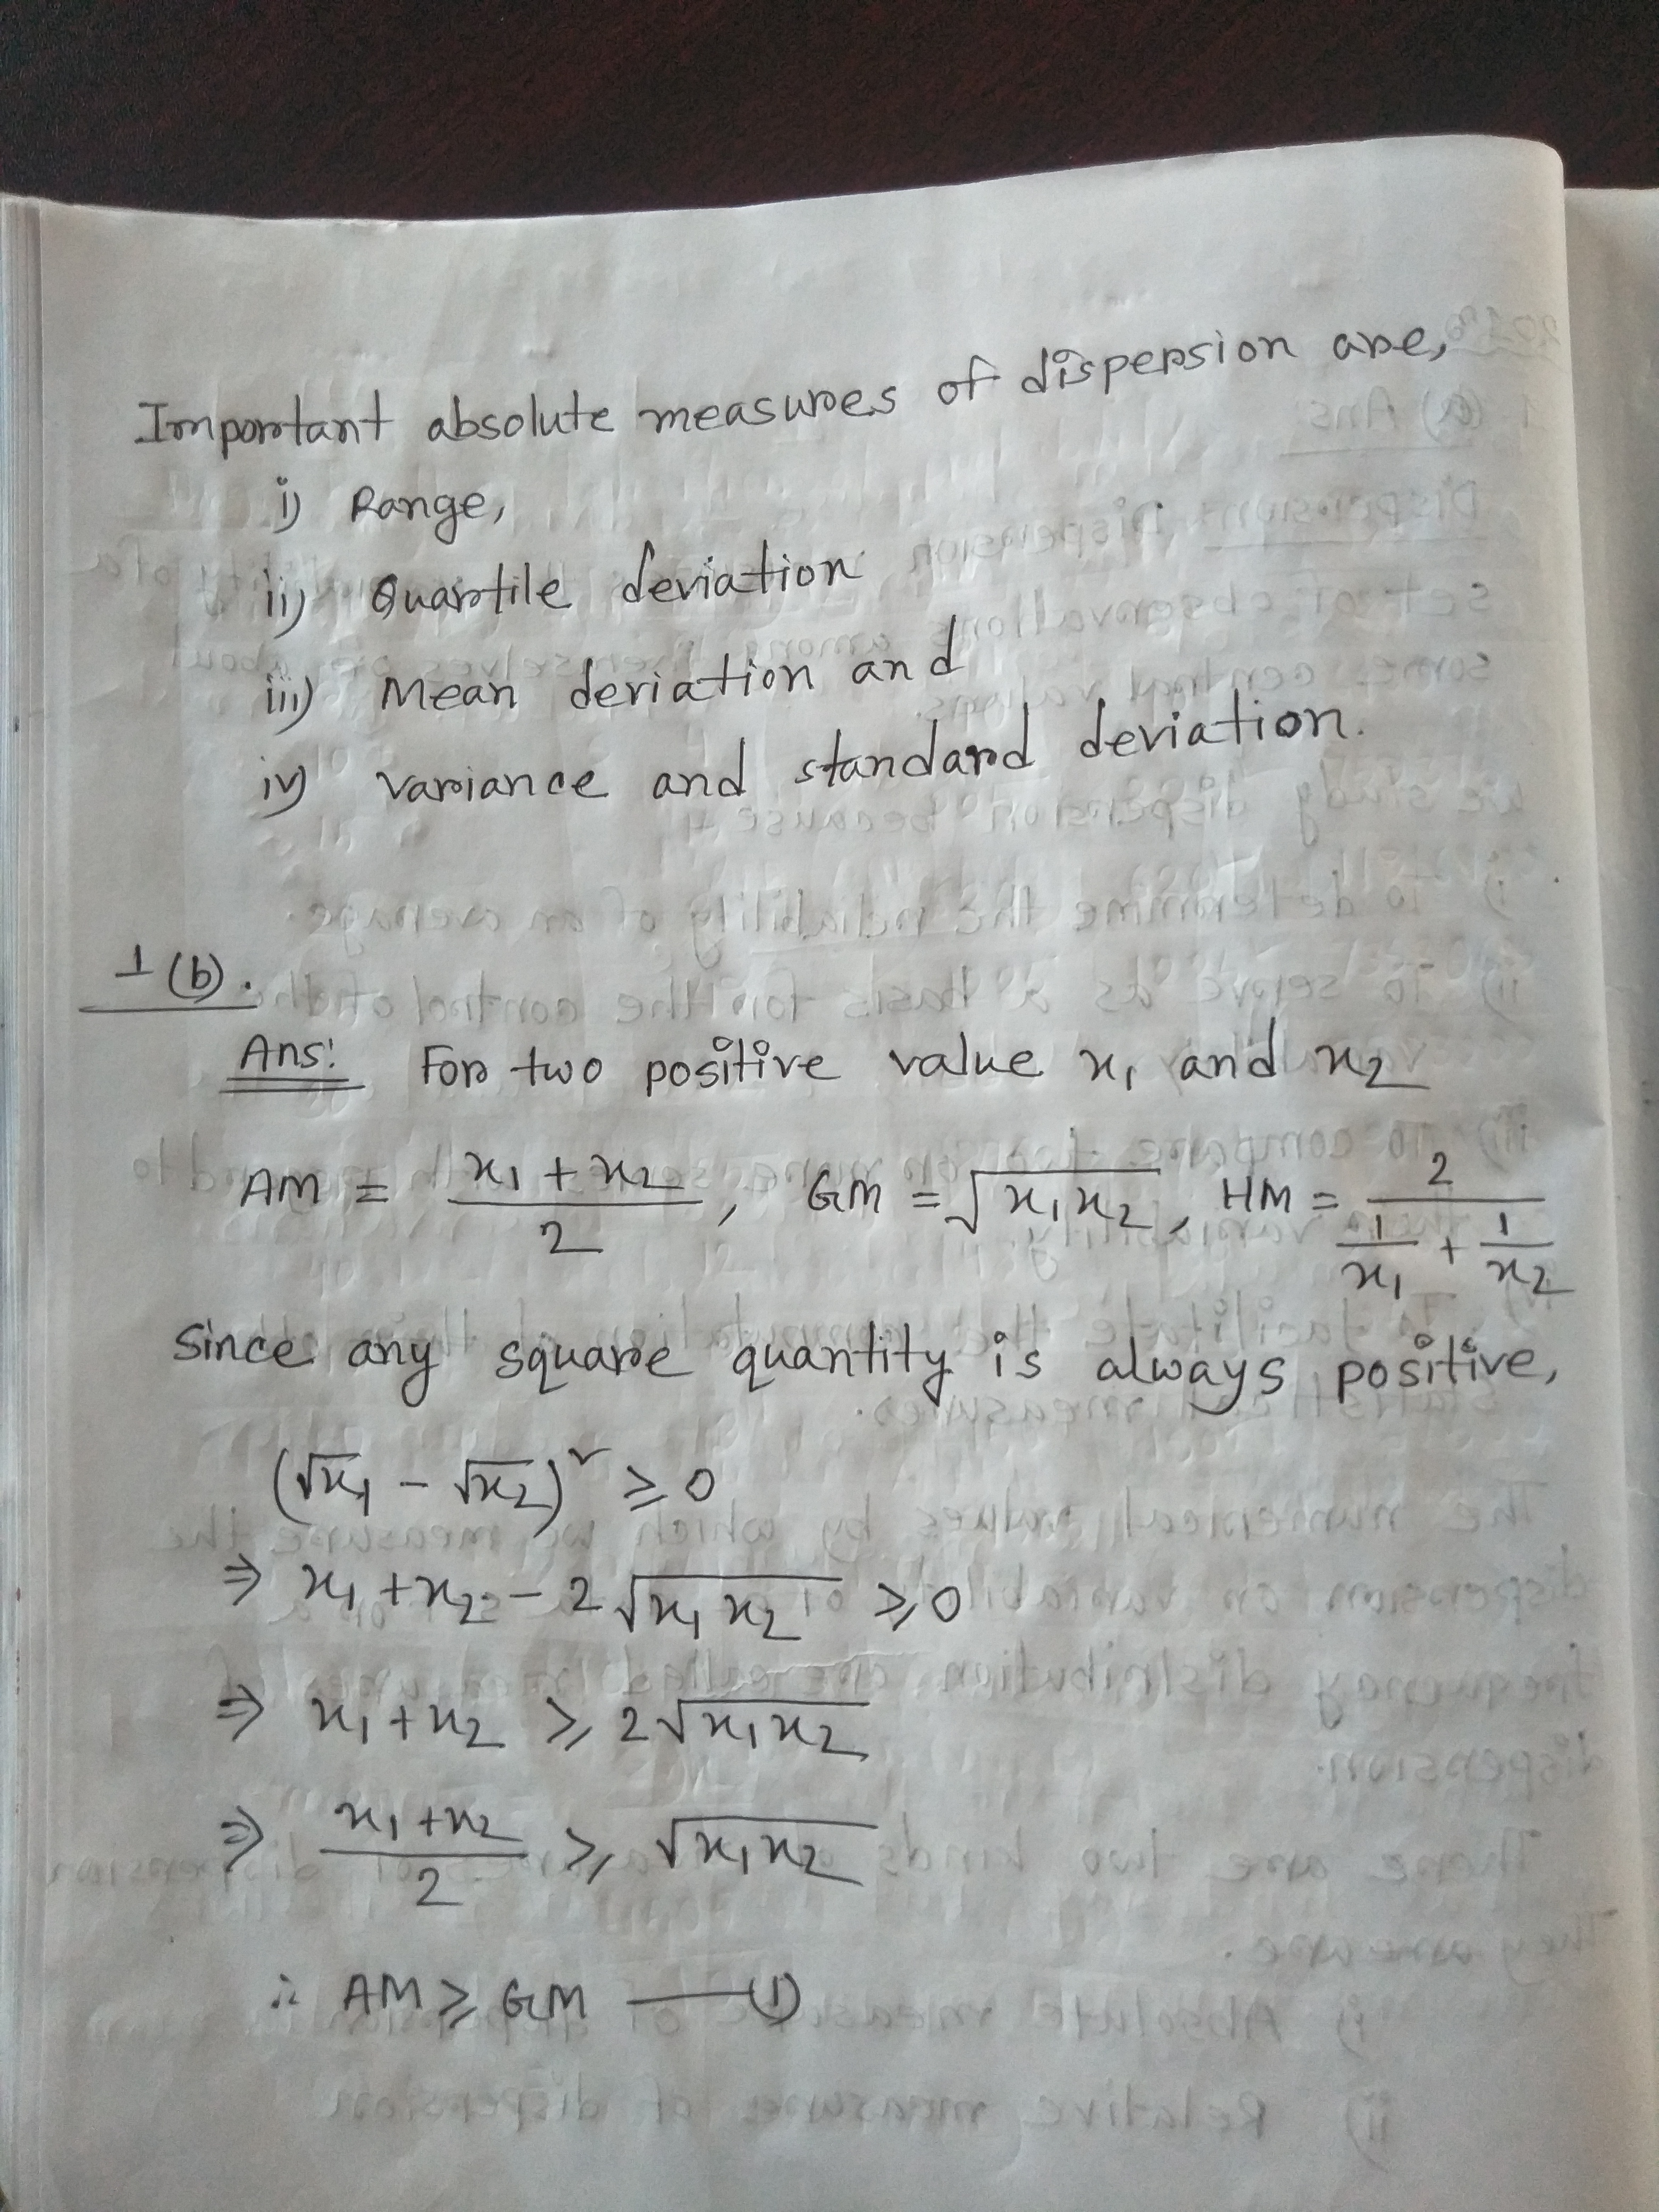 Important absolute measures of dispersion are,
i) Range,
ii) Quartile deviation
iii) Mean deviation and
iv) variance and standard deviation.
1(b).
Ans: For two positive value x₁ and x₂
AM = (x₁ + x₂)/2, GM = √(x₁x₂), HM = 2/(1/x₁ + 1/x₂)
Since any square quantity is always positive,
(√x₁ - √x₂)² ≥ 0
⇒ x₁ + x₂ - 2√(x₁x₂) ≥ 0
⇒ x₁ + x₂ ≥ 2√(x₁x₂)
⇒ (x₁ + x₂)/2 ≥ √(x₁x₂)
∴ AM ≥ GM —(1)